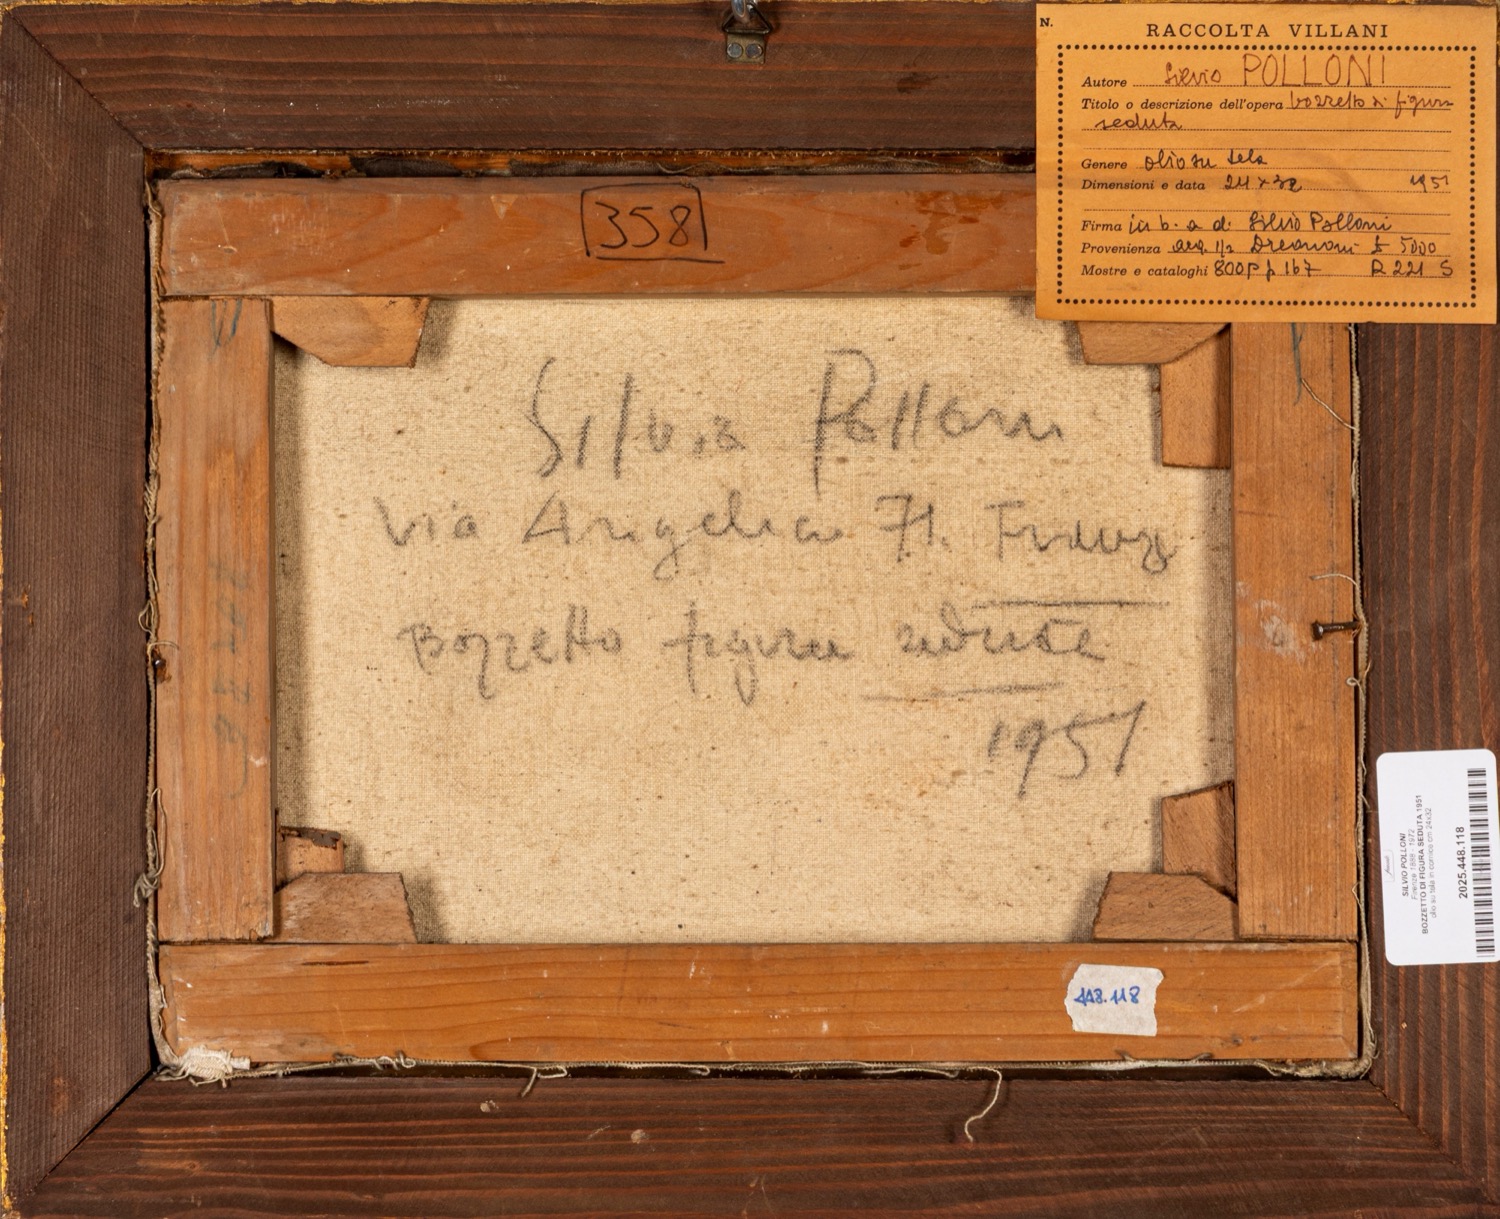 N.
RACCOLTA VILLANI
Autore Silvio POLLONI
Titolo o descrizione dell'opera bozzetto di figura
seduta
Genere olio su tela
Dimensioni e data 24 x 32 1951
Firma in b. a d. Silvio Polloni
Provenienza 5000
Mostre e cataloghi 800 P p 167 R 221 S
358
Silvio Polloni
Via Angelico 71. Firenze
Bozzetto figura seduta
1951
448.118
SILVIO POLLONI
Firenze 1888 - 1972
BOZZETTO DI FIGURA SEDUTA 1951
olio su tela in cornice cm 24x32
2025.448.118